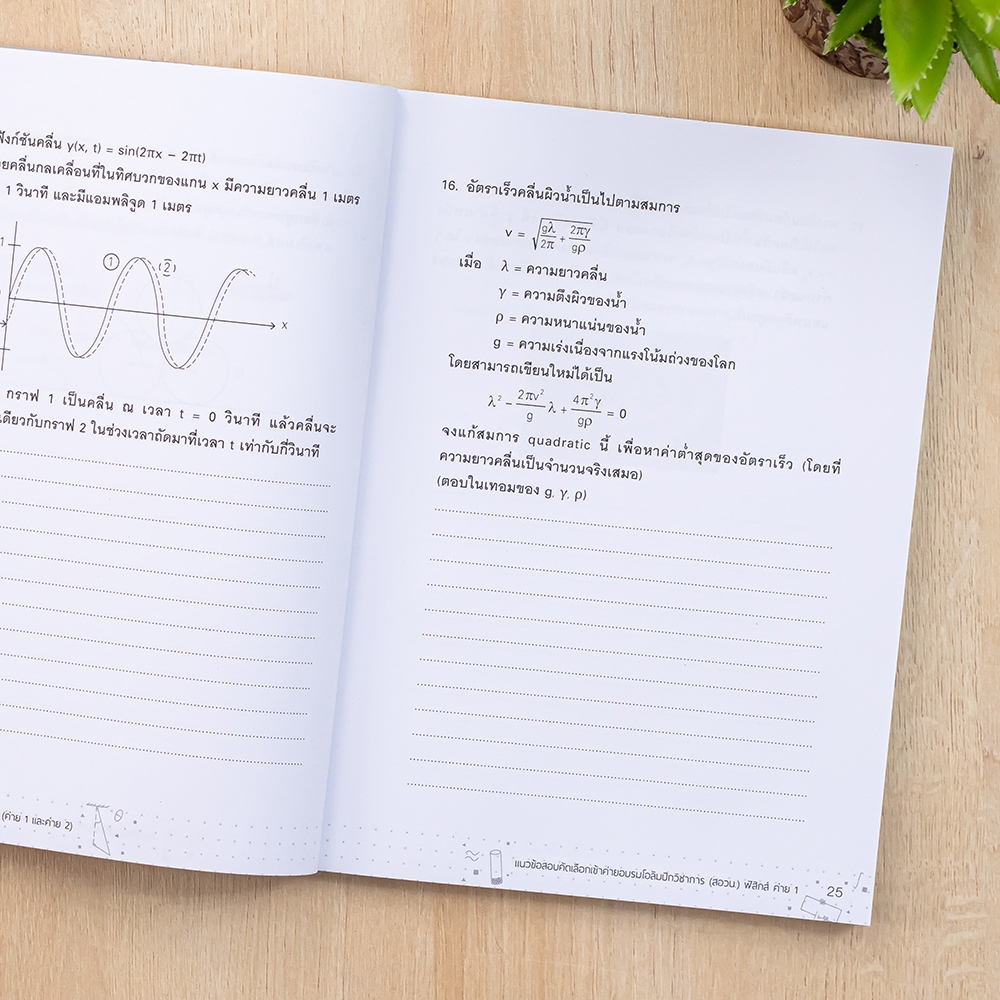 ฟังก์ชันคลื่น y(x, t) = sin(2πx − 2πt)
คลื่นกลเคลื่อนที่ในทิศบวกของแกน x มีความยาวคลื่น 1 เมตร
1 วินาที และมีแอมพลิจูด 1 เมตร
1
① (2)
x
กราฟ 1 เป็นคลื่น ณ เวลา t = 0 วินาที แล้วคลื่นจะ
เดียวกับกราฟ 2 ในช่วงเวลาถัดมาที่เวลา t เท่ากับกี่วินาที
(ค่าย 1 และค่าย 2)
θ
16. อัตราเร็วคลื่นผิวน้ำเป็นไปตามสมการ
v = √(gλ/2π + 2πγ/gρ)
เมื่อ λ = ความยาวคลื่น
γ = ความตึงผิวของน้ำ
ρ = ความหนาแน่นของน้ำ
g = ความเร่งเนื่องจากแรงโน้มถ่วงของโลก
โดยสามารถเขียนใหม่ได้เป็น
λ² − (2πv²/g)λ + 4π²γ/gρ = 0
จงแก้สมการ quadratic นี้ เพื่อหาค่าต่ำสุดของอัตราเร็ว (โดยที่
ความยาวคลื่นเป็นจำนวนจริงเสมอ)
(ตอบในเทอมของ g, γ, ρ)
แนวข้อสอบคัดเลือกเข้าค่ายอบรมโอลิมปิกวิชาการ (สอวน.) ฟิสิกส์ ค่าย 1 25